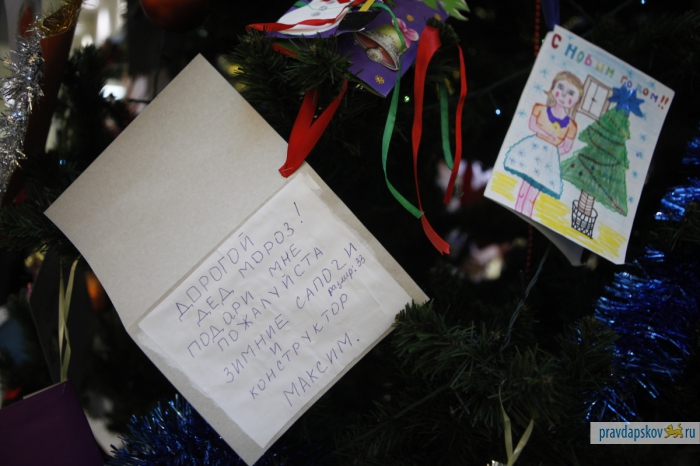 ДОРОГОЙ
ДЕД МОРОЗ!
ПОДАРИ МНЕ
ПОЖАЛУЙСТА
ЗИМНИЕ САПОГИ
размер: 33
И
КОНСТРУКТОР
МАКСИМ.
С НОВЫМ ГОДОМ!!
pravdapskov.ru